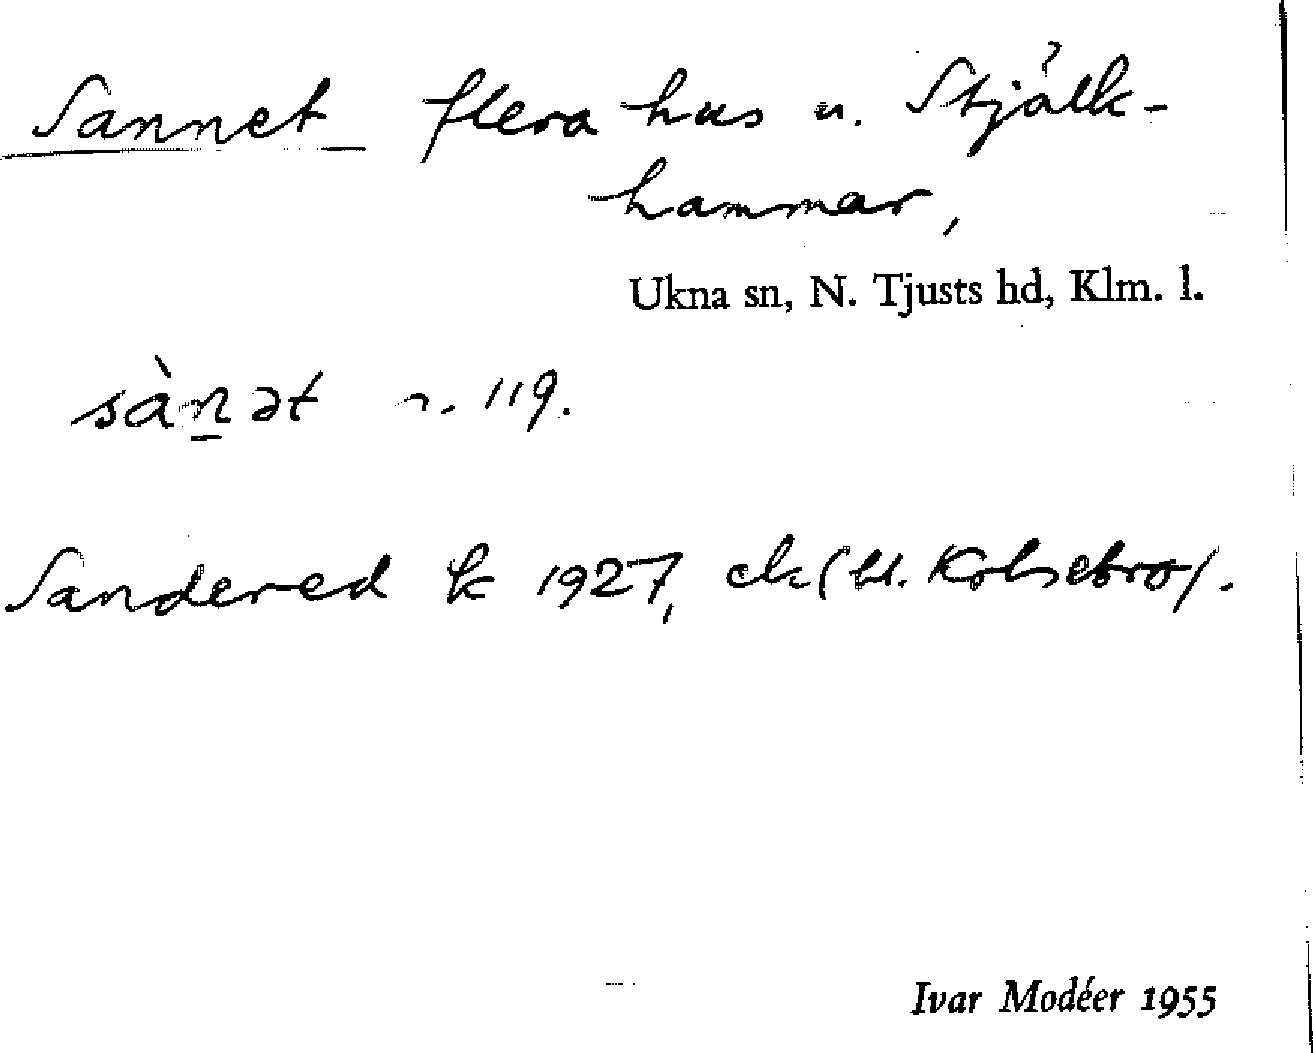 Sannet flera hus u. Stjälk-
hammar,
Ukna sn, N. Tjusts hd, Klm. l.
sàn̲ət n. 119.
Sandered k 1927, ek (bl. Kolsebro).
Ivar Modéer 1955